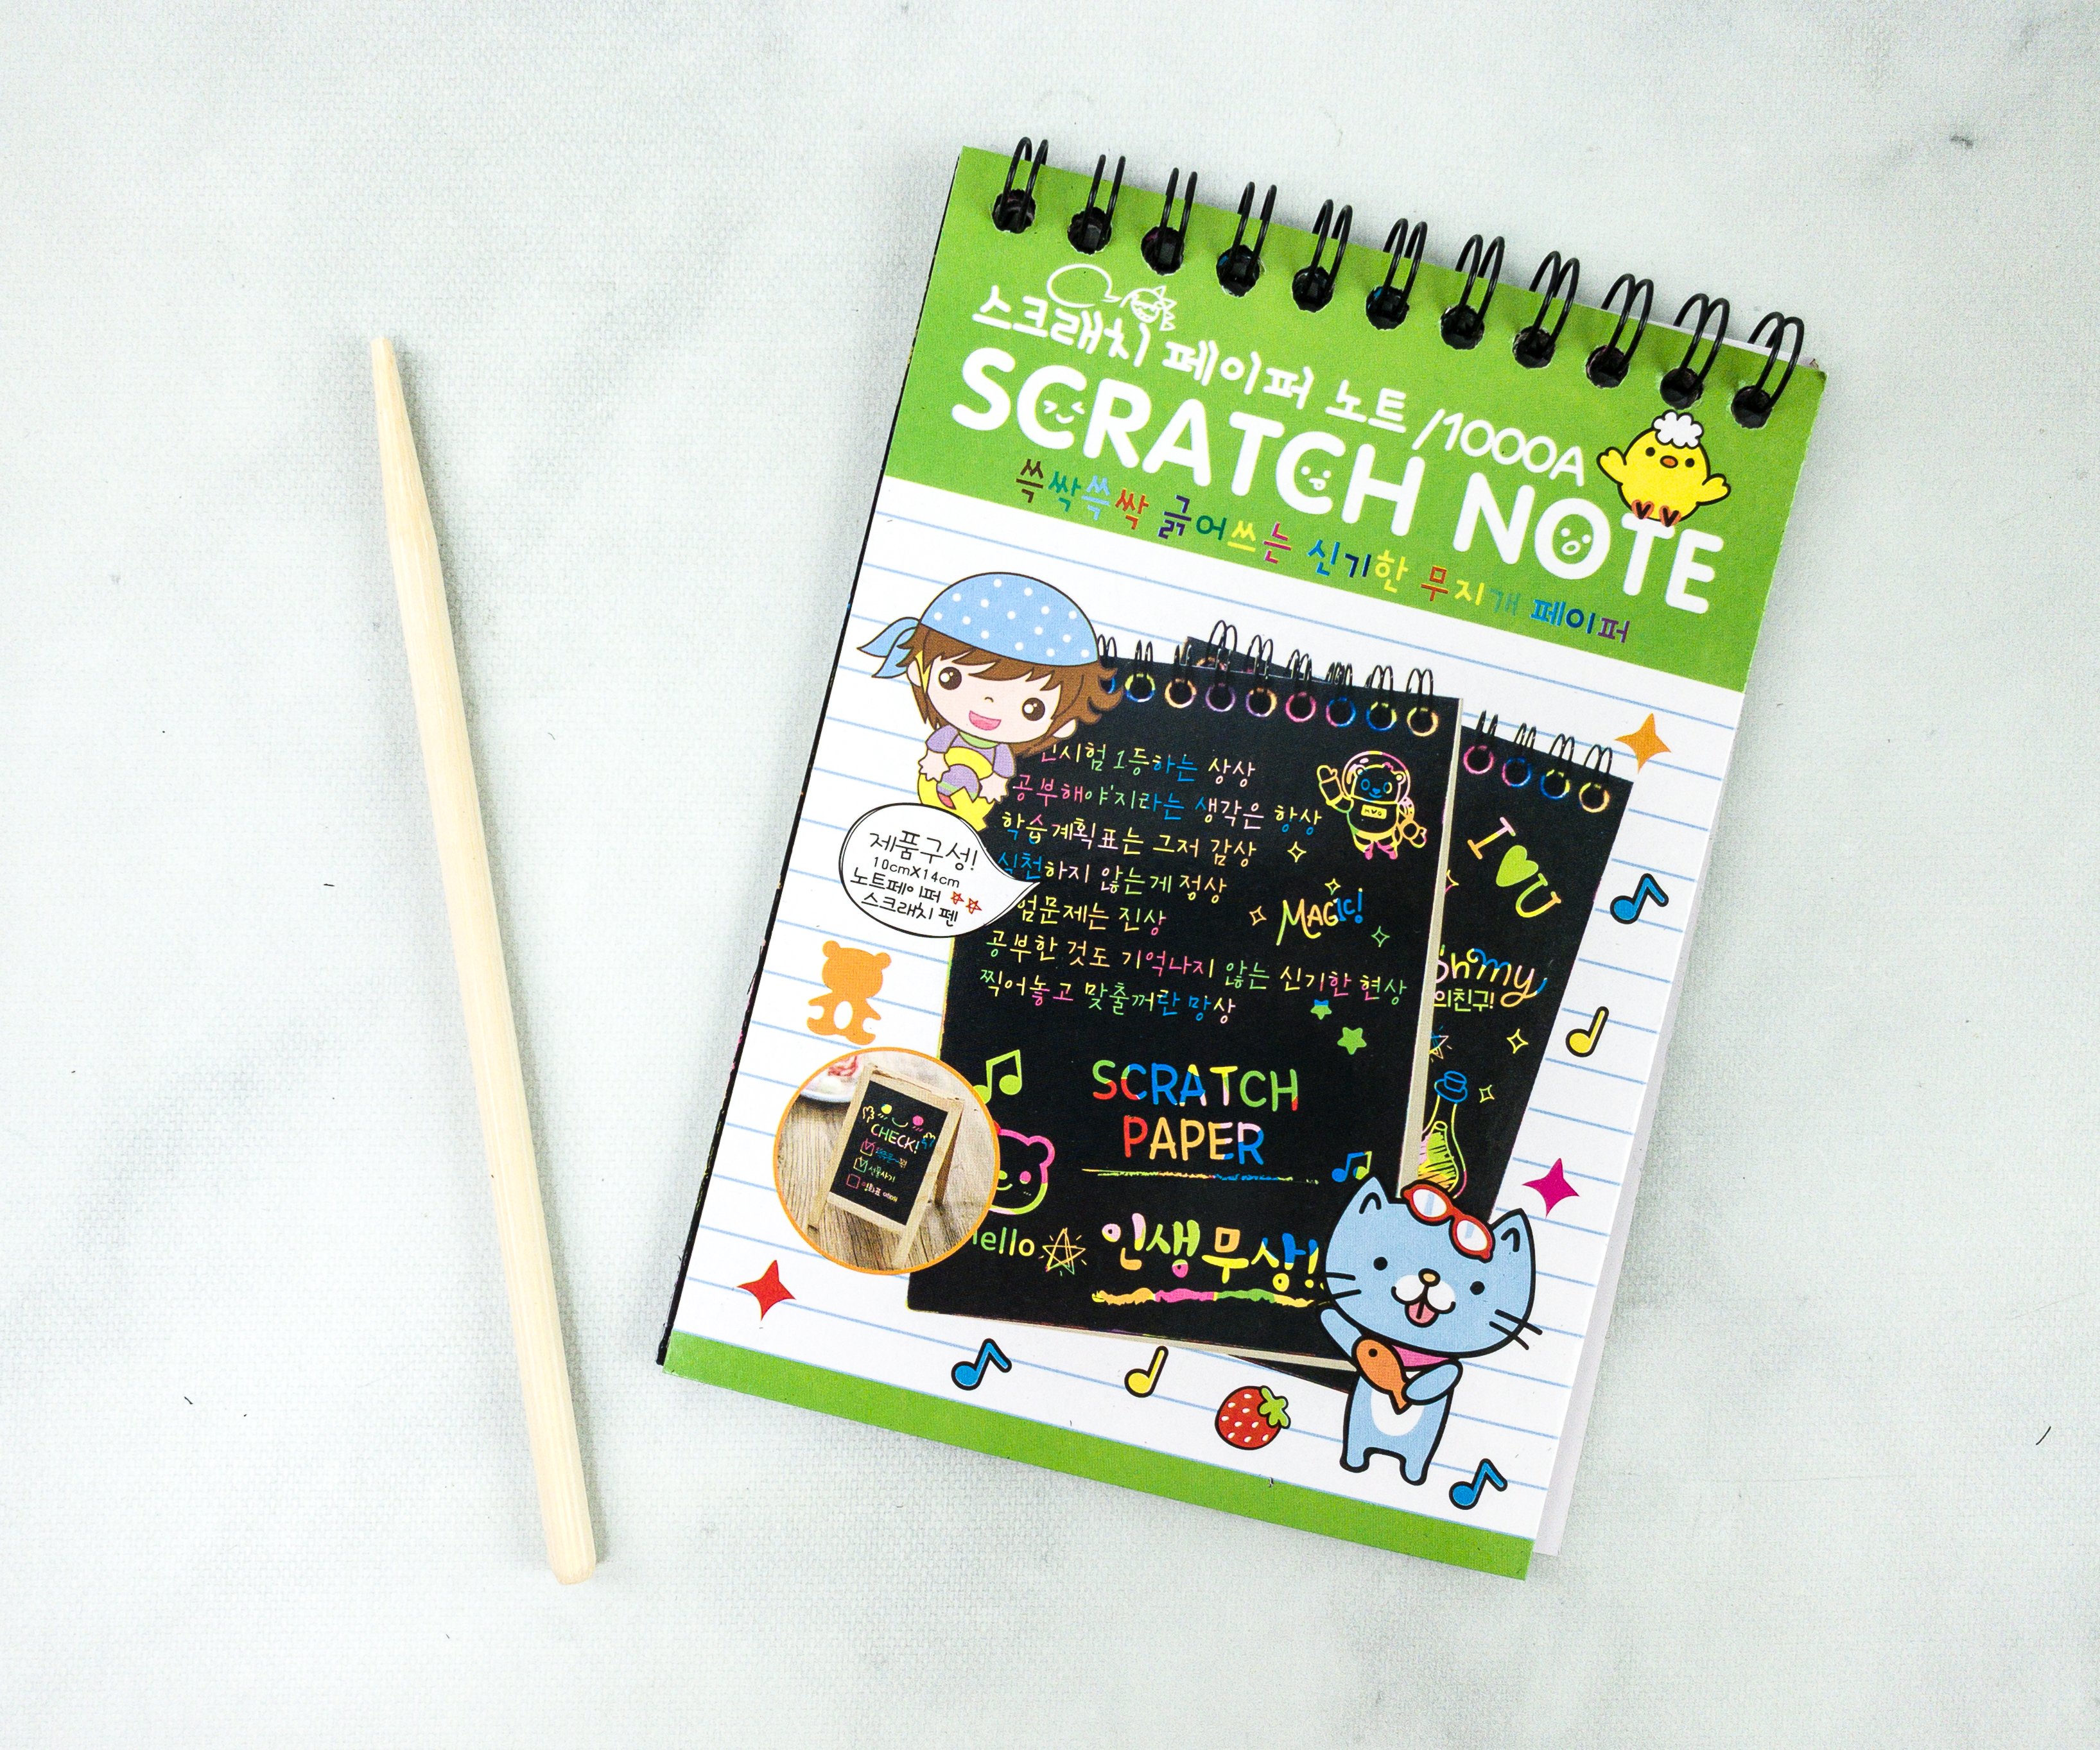 스크래치 페이퍼 노트 /1000A
SCRATCH NOTE
쓱싹쓱싹 긁어쓰는 신기한 무지개 페이퍼
시험 1등하는 상상
공부해야'지라는 생각은 항상
학습계획표는 그저 감상
실천하지 않는게 정상
문제는 진상
공부한 것도 기억나지 않는 신기한 현상
찍어놓고 맞출꺼란 망상
MAGIC!
제품구성!
10cmX14cm
노트페이퍼
스크래치 펜
I U
Oh my
의친구!
SCRATCH
PAPER
CHECK!
ello
인생무상!